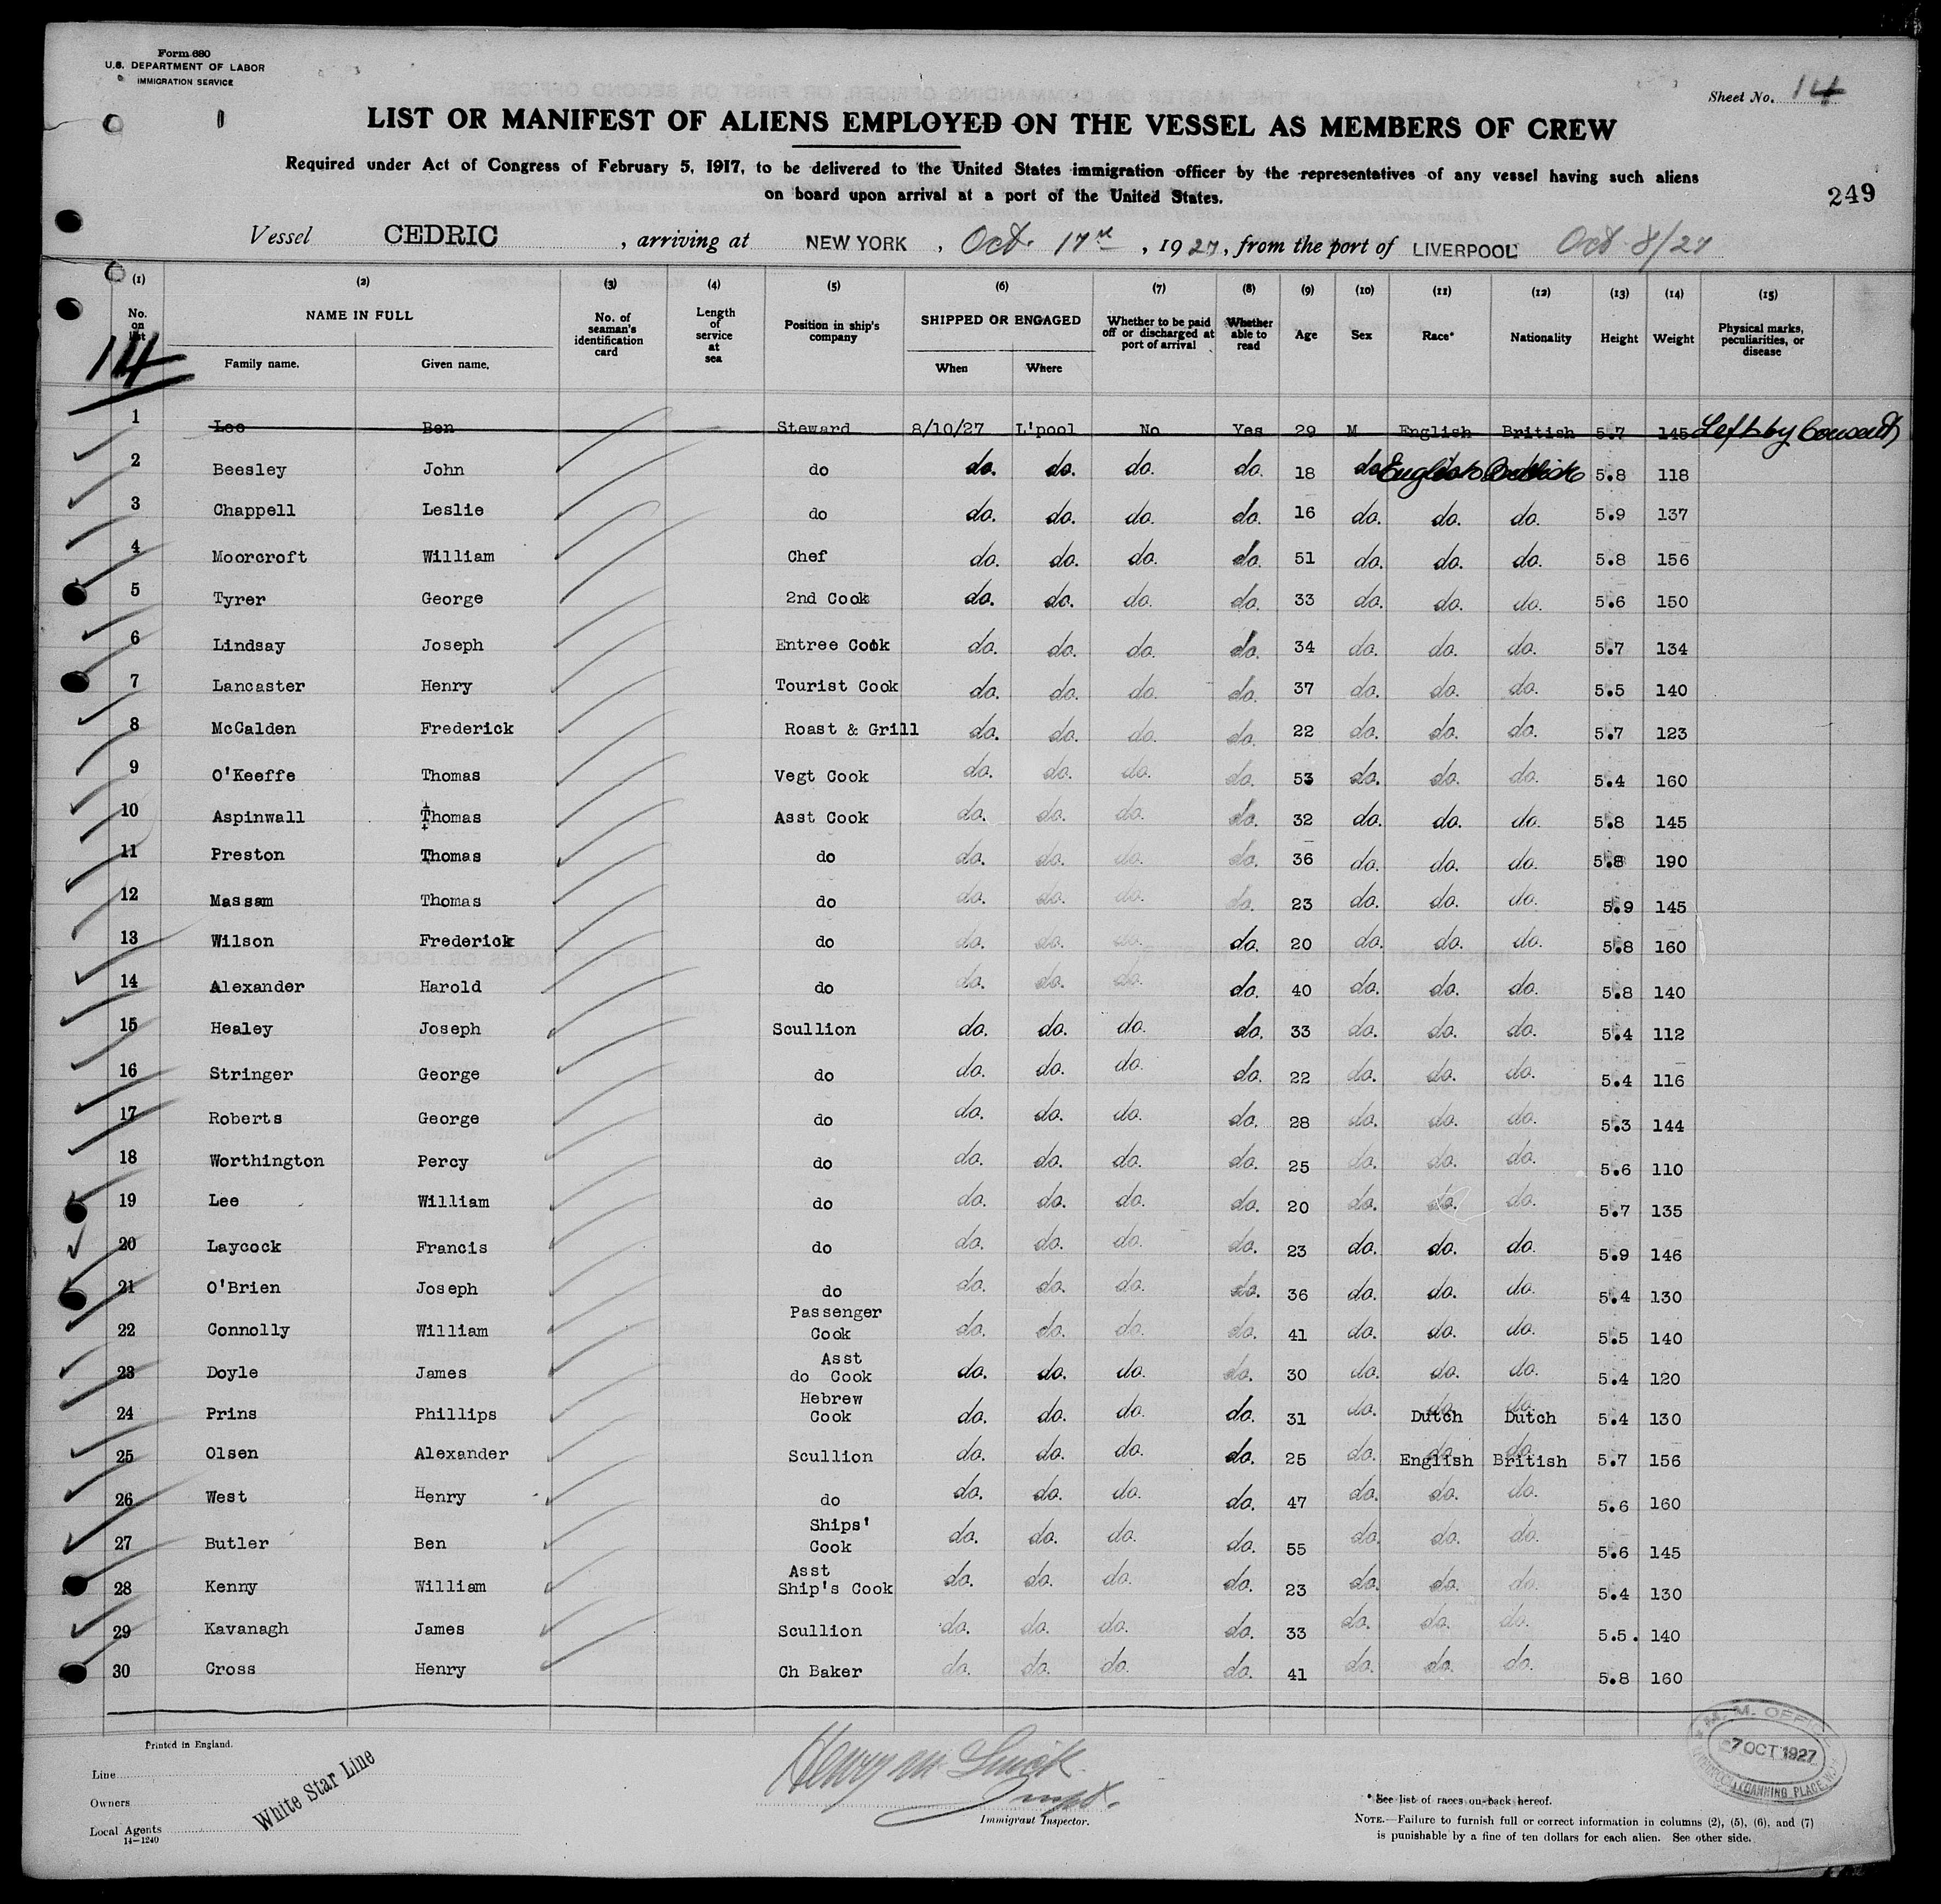 Form 680
U.S. DEPARTMENT OF LABOR
IMMIGRATION SERVICE
Sheet No. 14
LIST OR MANIFEST OF ALIENS EMPLOYED ON THE VESSEL AS MEMBERS OF CREW
Required under Act of Congress of February 5, 1917, to be delivered to the United States immigration officer by the representatives of any vessel having such aliens
on board upon arrival at a port of the United States.
249
Vessel CEDRIC, arriving at NEW YORK, Oct. 17th, 1927, from the port of LIVERPOOL Oct 8/27
(1) (2) (3) (4) (5) (6) (7) (8) (9) (10) (11) (12) (13) (14) (15)
No. on list NAME IN FULL Family name. Given name. No. of seaman's identification card Length of service at sea Position in ship's company SHIPPED OR ENGAGED When Where Whether to be paid off or discharged at port of arrival Whether able to read Age Sex Race* Nationality Height Weight Physical marks, peculiarities, or disease
14
1 Lee Ben Steward 8/10/27 L'pool No Yes 29 M English British 5.7 145 Left by Consent
2 Beesley John do do. do. do. do. 18 do. English 5.8 118
3 Chappell Leslie do do. do. do. do. 16 do. do. do. 5.9 137
4 Moorcroft William Chef do. do. do. do. 51 do. do. do. 5.8 156
5 Tyrer George 2nd Cook do. do. do. do. 33 do. do. do. 5.6 150
6 Lindsay Joseph Entree Cook do. do. do. do. 34 do. do. do. 5.7 134
7 Lancaster Henry Tourist Cook do. do. do. do. 37 do. do. do. 5.5 140
8 McCalden Frederick Roast & Grill do. do. do. do. 22 do. do. do. 5.7 123
9 O'Keeffe Thomas Vegt Cook do. do. do. do. 53 do. do. do. 5.4 160
10 Aspinwall Thomas Asst Cook do. do. do. do. 32 do. do. do. 5.8 145
11 Preston Thomas do do. do. do. do. 36 do. do. do. 5.8 190
12 Massam Thomas do do. do. do. do. 23 do. do. do. 5.9 145
13 Wilson Frederick do do. do. do. do. 20 do. do. do. 5.8 160
14 Alexander Harold do do. do. do. do. 40 do. do. do. 5.8 140
15 Healey Joseph Scullion do. do. do. do. 33 do. do. do. 5.4 112
16 Stringer George do do. do. do. do. 22 do. do. do. 5.4 116
17 Roberts George do do. do. do. do. 28 do. do. do. 5.3 144
18 Worthington Percy do do. do. do. do. 25 do. do. do. 5.6 110
19 Lee William do do. do. do. do. 20 do. do. do. 5.7 135
20 Laycock Francis do do. do. do. do. 23 do. do. do. 5.9 146
21 O'Brien Joseph do do. do. do. do. 36 do. do. do. 5.4 130
22 Connolly William Passenger Cook do. do. do. do. 41 do. do. do. 5.5 140
23 Doyle James Asst do Cook do. do. do. do. 30 do. do. do. 5.4 120
24 Prins Phillips Hebrew Cook do. do. do. do. 31 do. Dutch Dutch 5.4 130
25 Olsen Alexander Scullion do. do. do. do. 25 do. English British 5.7 156
26 West Henry do do. do. do. do. 47 do. do. do. 5.6 160
27 Butler Ben Ships' Cook do. do. do. do. 55 do. do. do. 5.6 145
28 Kenny William Asst Ship's Cook do. do. do. do. 23 do. do. do. 5.4 130
29 Kavanagh James Scullion do. do. do. do. 33 do. do. do. 5.5. 140
30 Cross Henry Ch Baker do. do. do. do. 41 do. do. do. 5.8 160
Printed in England.
Line
Owners
White Star Line
Local Agents
14-1240
Henry
Immigrant Inspector.
M. M. OFFICE
7 OCT 1927
CANNING PLACE
* See list of races on back hereof.
NOTE.—Failure to furnish full or correct information in columns (2), (5), (6), and (7)
is punishable by a fine of ten dollars for each alien. See other side.